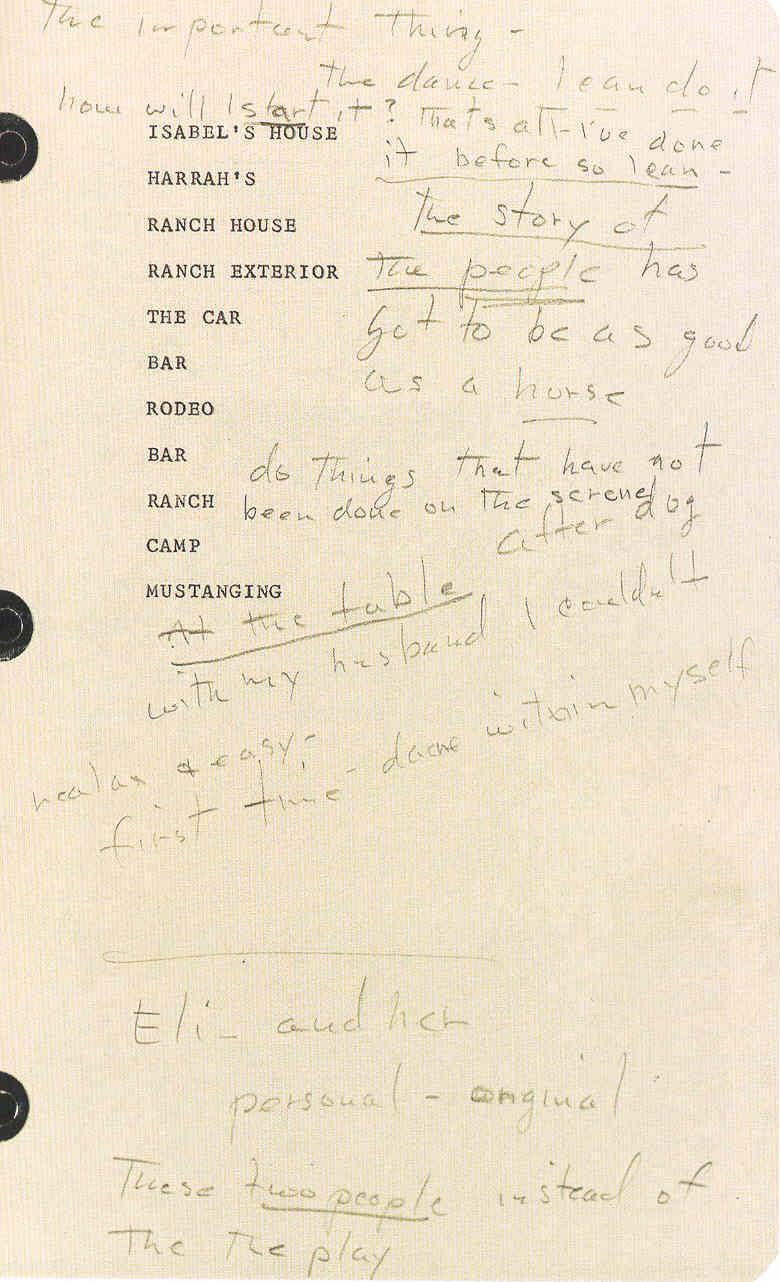 The important thing -
the dance - I can do it
how will I start it? thats all - I've done
ISABEL'S HOUSE
it before so I can -
HARRAH'S
the story of
RANCH HOUSE
the people has
RANCH EXTERIOR
THE CAR
got to be as good
BAR
as a horse
RODEO
BAR
do things that have not
RANCH
been done on the screne
after dog
CAMP
MUSTANGING
At the table
with my husband I couldn't
realax & easy -
first time - dance within myself
Eli - and her
personal - original
These two people instead of
the the play